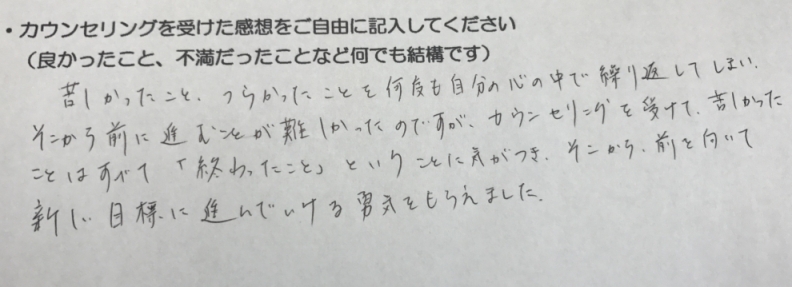 ・カウンセリングを受けた感想をご自由に記入してください
（良かったこと、不満だったことなど何でも結構です）
苦しかったこと、つらかったことを何度も自分の心の中で繰り返してしまい、
そこから前に進むことが難しかったのですが、カウンセリングを受けて、苦しかった
ことはすべて「終わったこと」ということに気がつき、そこから、前を向いて
新しい目標に進んでいける勇気をもらえました。